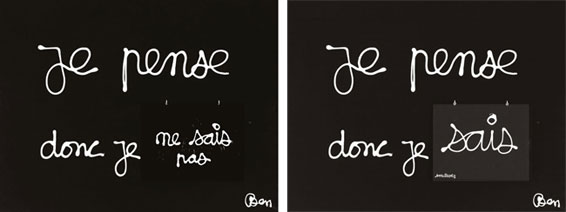 Je pense
donc je ne sais
pas
Ben
Je pense
donc je sais
Ben